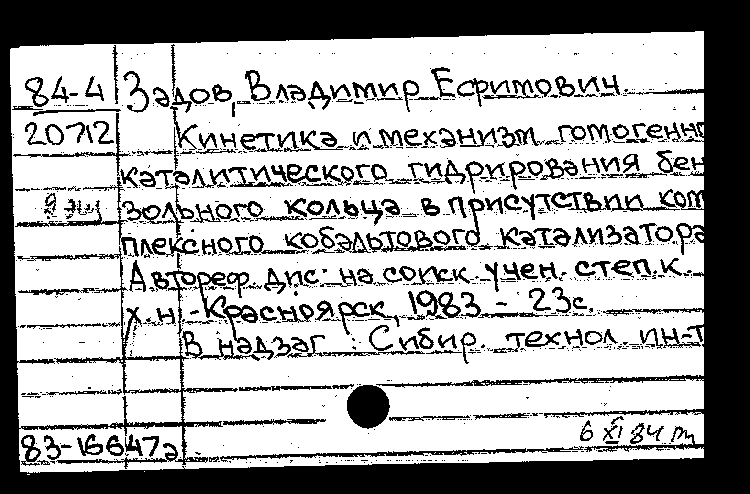 84-4 Задов, Владимир Ефимович.
20712 Кинетика и механизм гомогенно
каталитического гидрирования бен
зольного кольца в присутствии ком
плексного кобальтового катализатора
Автореф. дис. на соиск. учен. степ. к.
х.н. - Красноярск, 1983 - 23с.
В надзаг.: Сибир. технол. ин-т
83-16647а
6 XI 84